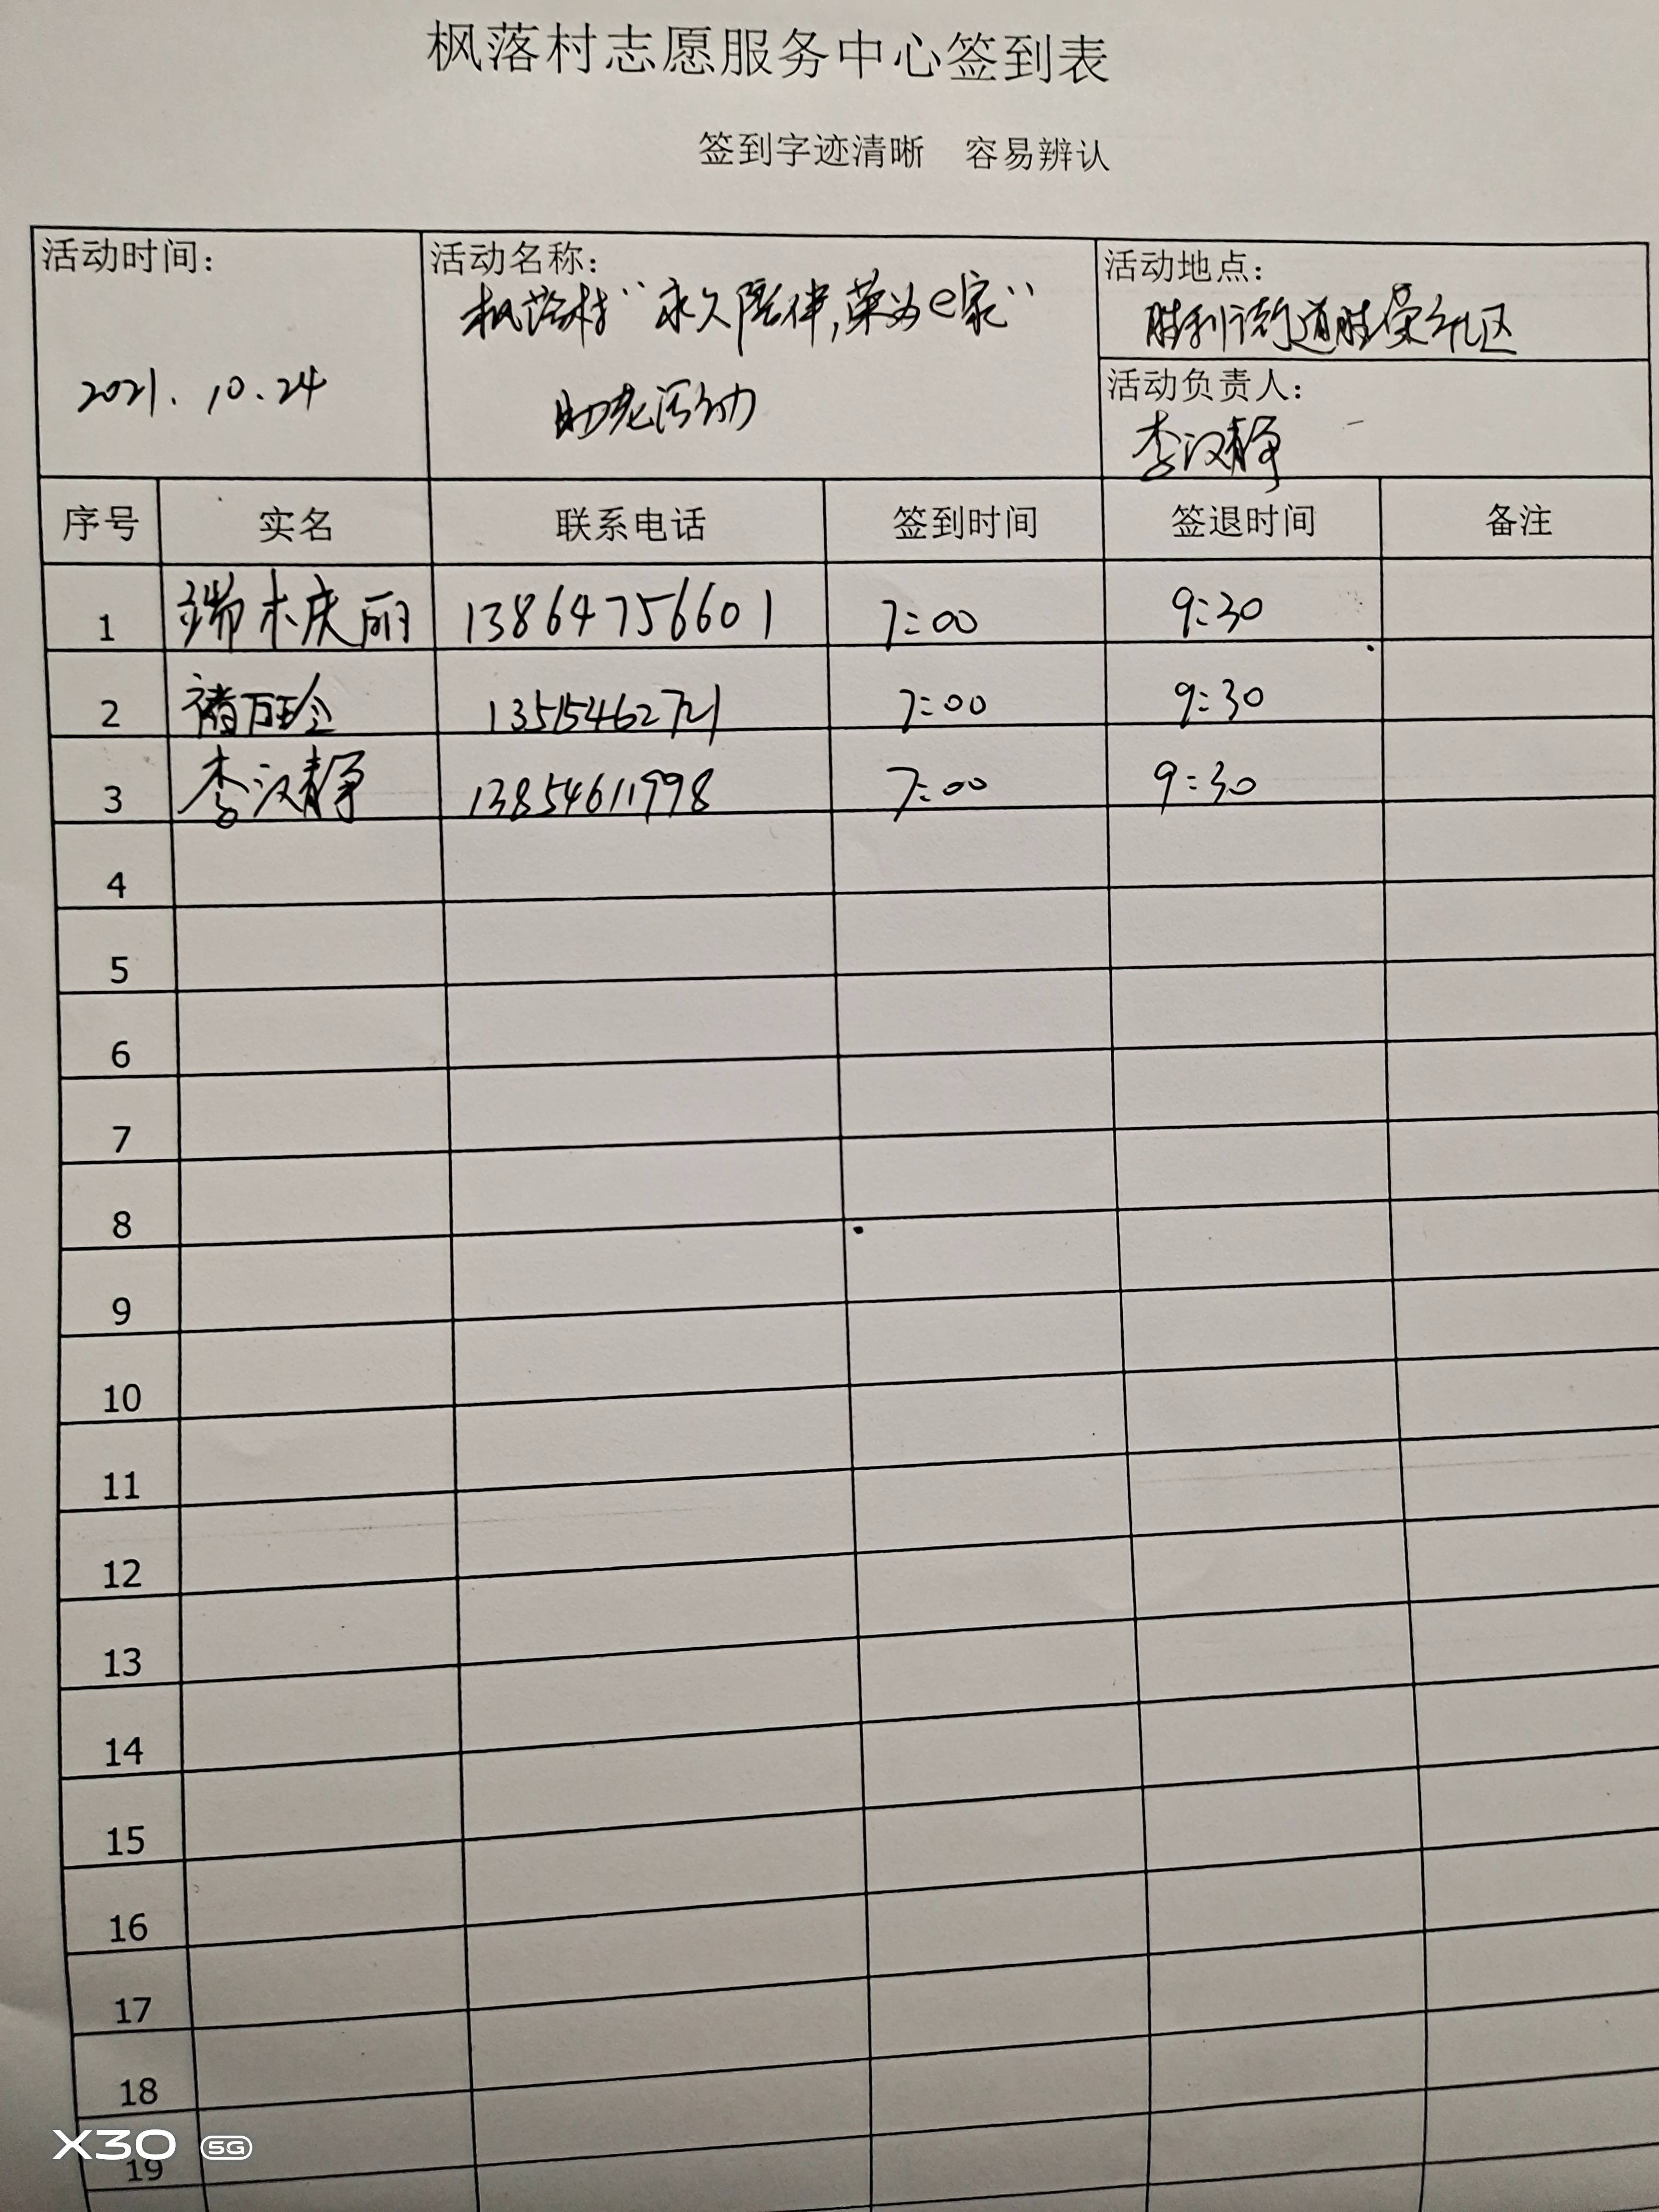 枫落村志愿服务中心签到表
签到字迹清晰 容易辨认
活动时间： 活动名称： 活动地点：
枫落村“永久陪伴,荣为e家” 胜利街道胜荣社区
2021.10.24 助老活动 活动负责人：
李汉静
序号 实名 联系电话 签到时间 签退时间 备注
1 端木庆丽 13864756601 7:00 9:30
2 褚万珍 13515462721 7:00 9:30
3 李汉静 13854611998 7:00 9:30
4
5
6
7
8
9
10
11
12
13
14
15
16
17
18
19
X30 5G